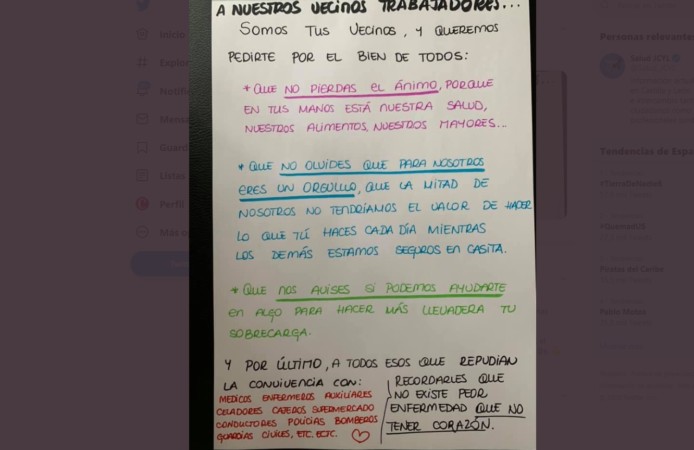 A NUESTROS VECINOS TRABAJADORES...
SOMOS TUS VECINOS, Y QUEREMOS
PEDIRTE POR EL BIEN DE TODOS:
* QUE NO PIERDAS EL ÁNIMO, PORQUE
EN TUS MANOS ESTÁ NUESTRA SALUD,
NUESTROS ALIMENTOS, NUESTROS MAYORES...
* QUE NO OLVIDES QUE PARA NOSOTROS
ERES UN ORGULLO, QUE LA MITAD DE
NOSOTROS NO TENDRÍAMOS EL VALOR DE HACER
LO QUE TÚ HACES CADA DÍA MIENTRAS
LOS DEMÁS ESTAMOS SEGUROS EN CASITA.
* QUE NOS AVISES SI PODEMOS AYUDARTE
EN ALGO PARA HACER MÁS LLEVADERA TU
SOBRECARGA.
Y POR ÚLTIMO, A TODOS ESOS QUE REPUDIAN
LA CONVIVENCIA CON:
MEDICOS ENFERMEROS AUXILIARES
CELADORES CAJEROS SUPERMERCADO
CONDUCTORES POLICIAS BOMBEROS
GUARDIAS CIVILES, ETC. ECTC.
RECORDARLES QUE
NO EXISTE PEOR
ENFERMEDAD QUE NO
TENER CORAZÓN.
Inicio
Explor
Notific
Mensa
Guard
Listas
Perfil
Más op
Personas relevante
Tendencias de Espa